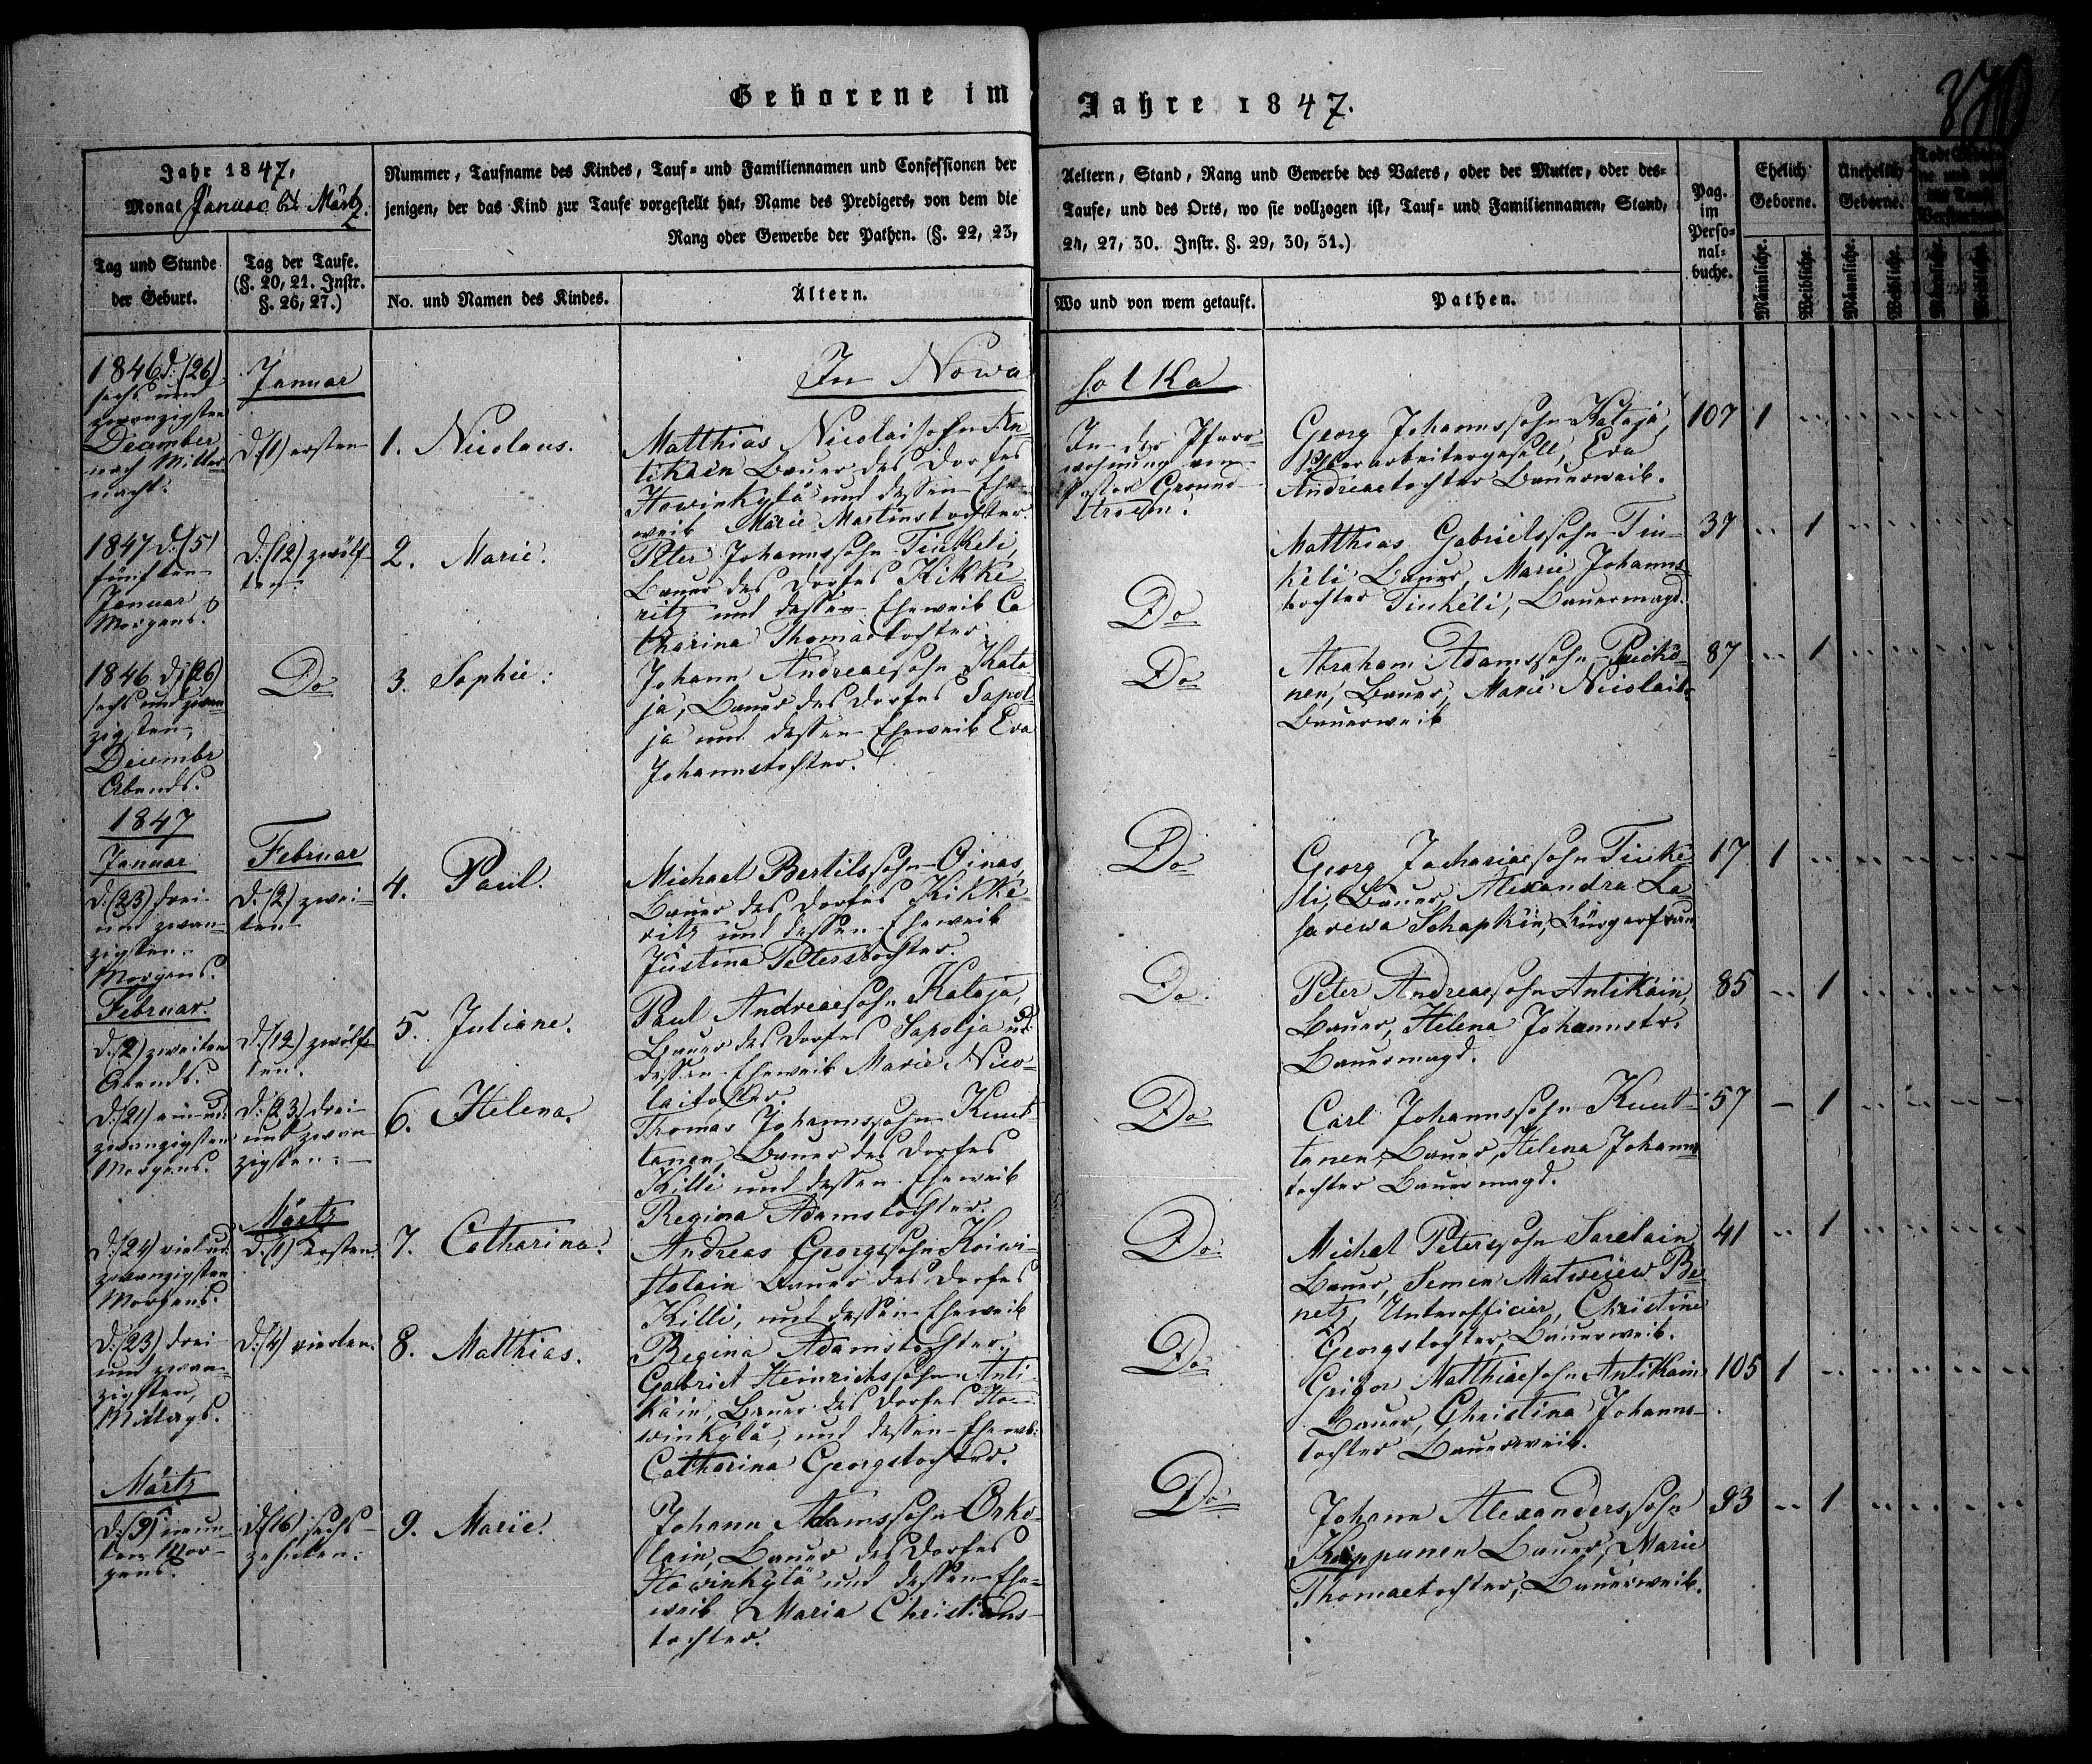 Geborene im Jahre 1847.
Jahr 1847.
Monat Januar bis Märtz.
Nummer, Taufname des Kindes, Tauf- und Familiennamen und Confessionen der
jenigen, der das Kind zur Taufe vorgestellt hat, Name des Predigers, von dem die
Rang oder Gewerbe der Pathen. (§. 22, 23,
Aeltern, Stand, Rang und Gewerbe des Vaters, oder der Mutter, oder des-
Taufe, und des Orts, wo sie vollzogen ist, Tauf- und Familiennamen, Stand,
24, 27, 30. Instr. §. 29, 30, 31.)
Pag.
im
Perso-
nal-
buche.
Ehelich
Geborne.
Unehelich
Geborne.
Tag und Stunde
der Geburt.
Tag der Taufe.
(§. 20, 21. Instr.
§. 26, 27.)
No. und Namen des Kindes.
Ältern.
Wo und von wem getauft.
Pathen.
Männliche.
Weibliche.
Männliche.
Weibliche.
Männliche.
Weibliche.
In Nowa
solka
1846 d: (26)
sechs und
zwanzigsten
December
nach Mitter
nacht.
Januar
d: (1) ersten
1. Nicolaus.
Matthias Nicolaisohn An-
tikain Bauer des Dorfes
Howinkylä und dessen Ehe-
weib Marie Martinstochter.
In der Pfarr-
wohnung vom
Pastor Ground-
stroem.
Georg Johannssohn Kataja,
Eva
Andreaetochter Bauerweib.
107 1
1847 d: (5)
fünften
Januar
Morgens.
d: (12) zwölf-
ten
2. Marie.
Peter Johannssohn Tinkeli,
Bauer des Dorfes Kikke-
ritz und dessen Eheweib Ca
tharina Thomaetochter.
Do
Matthias Gabrielssohn Tin-
keli Bauer, Marie Johanns-
tochter Tinkeli, Bauermagd.
37 1
1846 d: (26)
sechs und zwan
zigsten
Decembr
Abends.
Do
3. Sophie.
Johann Andreaesohn Kata-
ja, Bauer des Dorfes Sapol-
ja und dessen Eheweib Eva
Johannstochter.
Do
Abraham Adamssohn
nen, Bauer, Marie Nicolait:
Bauerweib
87 1
1847
Januar
d: (23) drei
und zwan-
zigsten
Morgens.
Februar
d: (2) zwei-
ten
4. Paul.
Michael Bertilssohn Oinas,
Bauer des Dorfes Kikke-
ritz und dessen Eheweib
Justina Peterstochter.
Do
Georg Zachariaesohn Tinke-
li, Bauer, Alexandra La
sarewa Schapkin, Bürgerfrau
17 1
Februar.
d: (2) zweiten
Abends.
d: (12) zwölf-
ten.
5. Juliane.
Paul Andreaesohn Kataja,
Bauer des Dorfes Sapolja ud:
dessen Eheweib Marie Nico-
laitochter.
Do
Peter Andreaesohn Antikain,
Bauer, Helena Johannstr.
Bauermagd.
85 1
d: (21) ein ud:
zwanzigsten
Morgens.
d: (23) drei-
und zwan
zigsten.
6. Helena.
Thomas Johannssohn Kunt-
tanen, Bauer des Dorfes
Killi und dessen Eheweib
Regina Adamstochter.
Do
Carl Johannssohn Kunt-
tanen, Bauer, Helena Johanns
tochter Bauermagd.
57 1
d: (24) viel ud:
zwanzigsten
Morgens.
Märtz
d: (1) ersten.
7. Catharina.
Andreas Georgssohn Koiwi-
stolain Bauer des Dorfes
Killi, und dessen Eheweib
Regina Adamstochter.
Do
Michel Peterssohn Sarelain
Bauer, Semen Matweiew Be
netz, Unterofficier, Christine
Georgstochter, Bauerweib.
41 1
d: (23) drei
und zwan-
zigsten,
Mittags.
d: (4) vierten.
8. Matthias.
Gabriel Heinrichssohn Anti
käin, Bauer des Dorfes Ho-
winkylä, und dessen Ehewb:
Catharina Georgstochter.
Do
Grigor Matthiaesohn Antikain
Bauer, Christina Johanns-
tochter Bauerweib.
105 1
Märtz
d: (9) neun-
ten Mor-
gens.
d: (16) sechs-
zehnten.
9. Marie.
Johann Adamssohn Orko-
lain, Bauer des Dorfes
Howinkylä und dessen Ehe-
weib Maria Christians-
tochter.
Do
Johann Alexanderssohn
Bauer, Marie
Thomaetochter, Bauerweib.
93 1